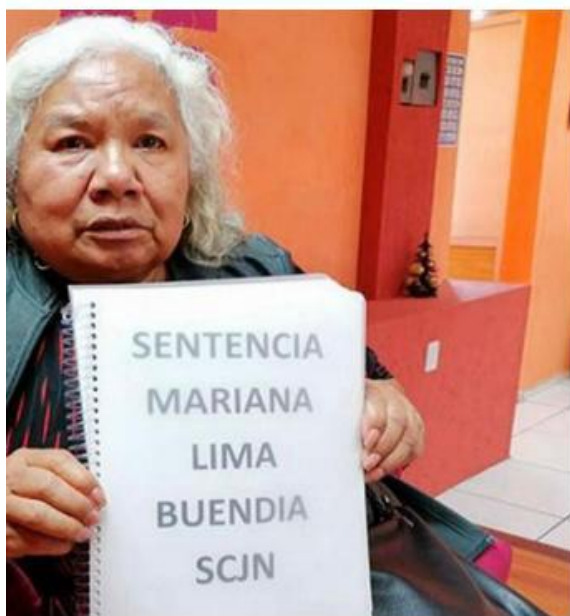 SENTENCIA
MARIANA
LIMA
BUENDIA
SCJN